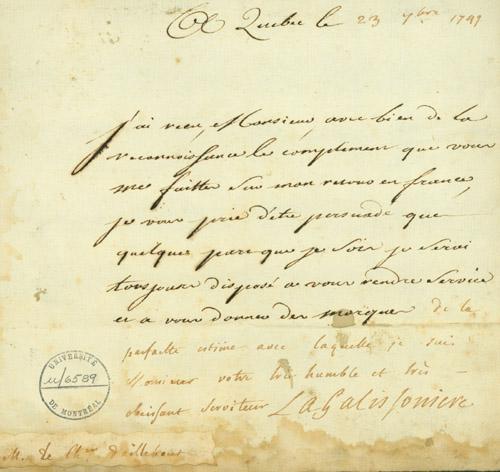 A Quebec le 23 7bre 1749
J'ai receu, Monsieur avec bien de la
reconnoissance le compliment que vous
me faittes sur mon retour en france,
je vous prie d'etre persuadé que
quelque part que je sois je serai
toujours disposé a vous rendre service
et a vous donner des marques de la
parfaitte estime avec laquelle je suis
Monsieur votre tres humble et très
obeissant serviteur LaGalissoniere
UNIVERSITÉ
u/6589
DE MONTRÉAL
M. le Ch.er d'aillebout